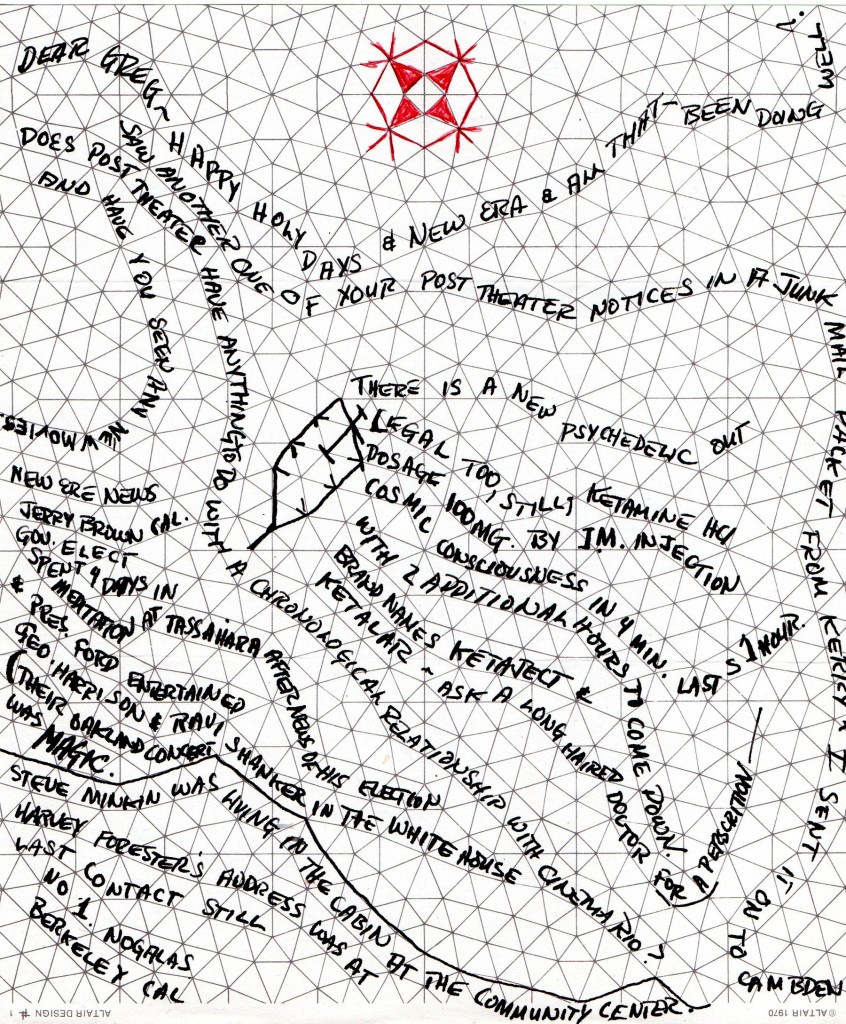 DEAR GREG~ HAPPY HOLY DAYS & NEW ERA & ALL THAT - BEEN DOING WELL
SAW ANOTHER ONE OF YOUR POST THEATER NOTICES IN A JUNK MAIL PACKET FROM & I SENT IT ON TO CAMBDEN
DOES POST THEATER HAVE ANYTHING TO DO WITH A CHRONOLOGICAL RELATIONSHIP WITH CINEMA RIO ?
AND HAVE YOU SEEN ANY NEW MOVIES.
THERE IS A NEW PSYCHEDELIC OUT
LEGAL TOO, STILL; KETAMINE HCl
DOSAGE 100MG. BY I.M. INJECTION
COSMIC CONSCIOUSNESS IN 4 MIN. LASTS 1 HOUR.
WITH 2 ADDITIONAL HOURS TO COME DOWN.
BRAND NAMES KETAJECT &
KETALAR ~ ASK A LONG HAIRED DOCTOR FOR A PERSCRITION —
NEW ERE NEWS
JERRY BROWN CAL.
GOV. ELECT
SPENT 4 DAYS IN
MEDTATION AT TASSAHARA AFTER NEWS OF HIS ELECTION
& PRES. FORD ENTERTAINED
GEO. HARRISON & RAVI SHANKER IN THE WHITE HOUSE
(THEIR OAKLAND CONCERT
WAS MAGIC.
STEVE MINKIN WAS LIVING IN THE CABIN AT THE COMMUNITY CENTER.
HARVEY FORESTER'S ADDRESS WAS AT
LAST CONTACT STILL
NO 1. NOGALAS
BERKELEY CAL
ALTAIR DESIGN # 1
© ALTAIR 1970